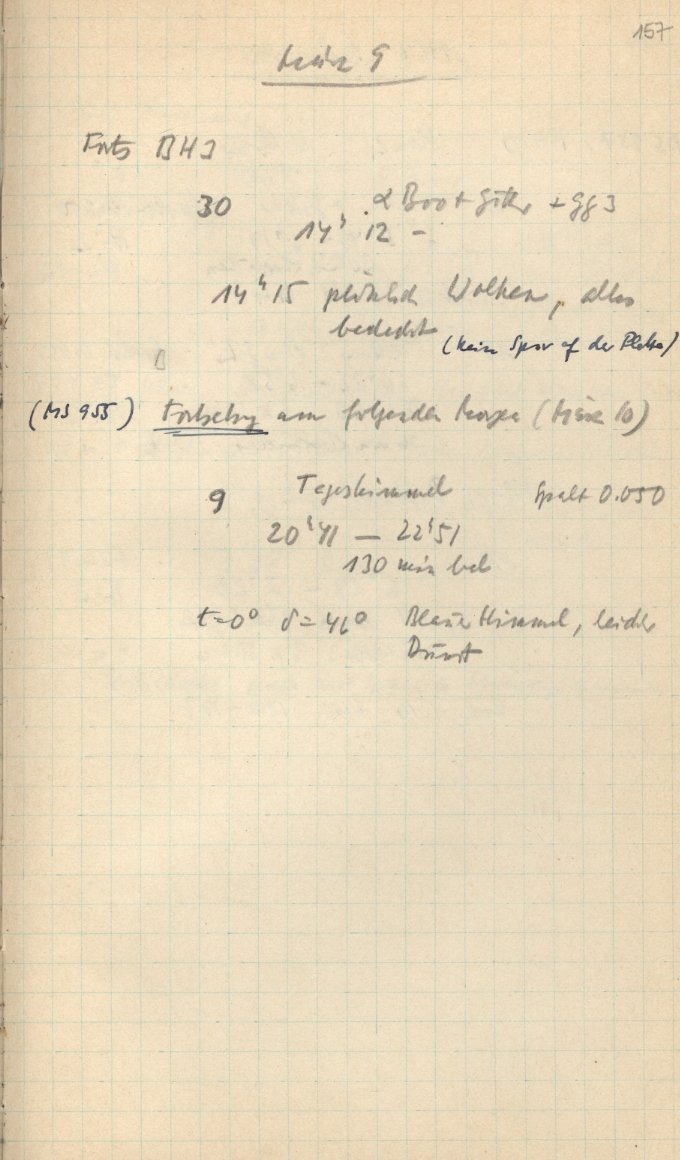 157
März 9
Forts BH3
30 α Boo + Gitter + GG 3
14ʰ 12 -
14ʰ15 plötzlich Wolken, alles
bedeckt
(keine Spur auf der Platte)
(MS 955) Fortsetzung am folgenden Morgen (März 10)
9 Tageshimmel Spalt 0.050
20ʰ41 — 22ʰ51
130 min bel
t=0° δ=46° Blauer Himmel, leichter
Dunst